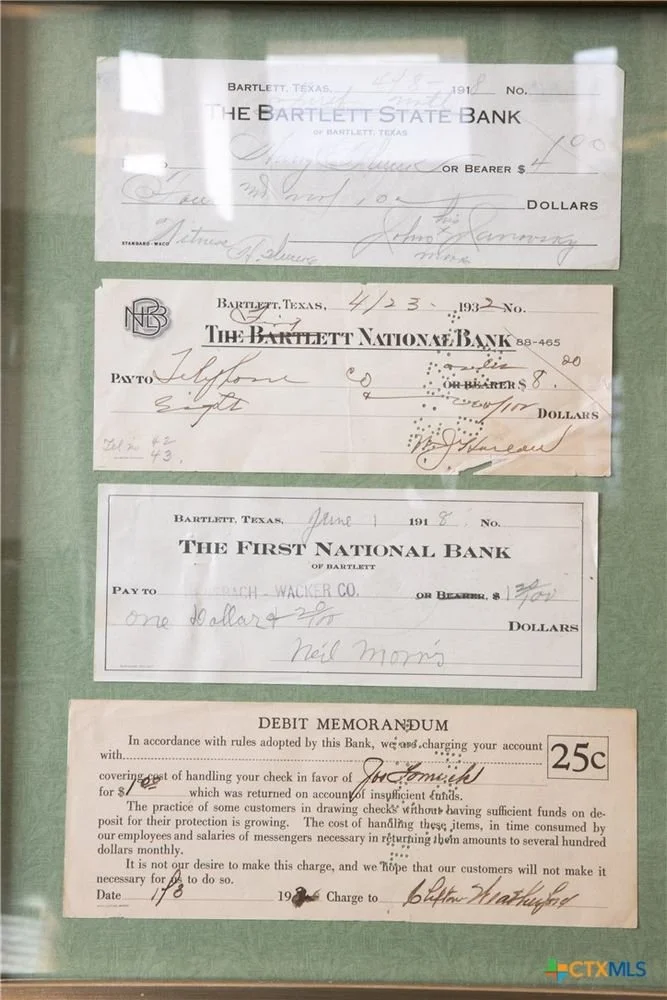 BARTLETT, TEXAS, 1918 No.
THE BARTLETT STATE BANK
OF BARTLETT, TEXAS
OR BEARER $ 4 00
Four and no/100 DOLLARS
his
STANDARD-WACO Witness John Janovsky
mark
NBB
BARTLETT, TEXAS, 4/23 - 1932 No.
THE BARTLETT NATIONAL BANK 88-465
PAY TO Telephone Co OR BEARER $ 8.00
Eight & 00/100 DOLLARS
Tel n 42
43.
BARTLETT, TEXAS, June 1 1918 No.
THE FIRST NATIONAL BANK
OF BARTLETT
PAY TO WACKER CO. OR BEARER, $ 1 20/100
one Dollar & 20/100 DOLLARS
Neil Morris
DEBIT MEMORANDUM
In accordance with rules adopted by this Bank, we are charging your account
with 25c
covering cost of handling your check in favor of Joe
for $1.00 which was returned on account of insufficient funds.
The practice of some customers in drawing checks without having sufficient funds on de-
posit for their protection is growing. The cost of handling these items, in time consumed by
our employees and salaries of messengers necessary in returning them amounts to several hundred
dollars monthly.
It is not our desire to make this charge, and we hope that our customers will not make it
necessary for us to do so.
Date 1/3 19 Charge to Clifton Weatherford
CTXMLS